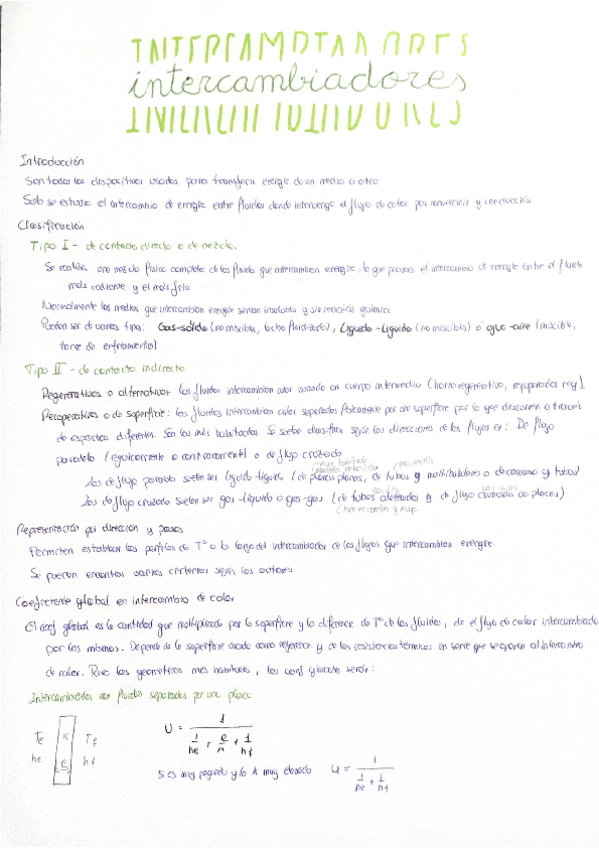 INTERCAMBIADORES
intercambiadores
INTERCAMBIADORES
Introducción
Son todos los dispositivos usados para transferir energía de un medio a otro
Solo se estudia el intercambio de energía entre fluidos donde interviene el flujo de calor por convección y conducción
Clasificación
Tipo I - de contacto directo o de mezcla.
Se realiza una mezcla física completa de los fluidos que intercambian energía, lo que provoca el intercambio de energía entre el fluido
más caliente y el más frío
Normalmente los medios que intercambian energía serían insolubles y sin reacción química
Pueden ser de varios tipos: Gas-sólido (no miscibles, lecho fluidizado), Líquido-Líquido (no miscibles) o agua-aire (miscible,
torre de enfriamiento)
Tipo II - de contacto indirecto
Regenerativos o alternativos: los fluidos intercambian calor usando un cuerpo intermedio (horno regenerativo, recuperador reg).
Recuperativos o de superficie: los fluidos intercambian calor separados físicamente por una superficie por lo que discurren a través
de espacios diferentes. Son los más habituales. Se suele clasificar según las direcciones de los flujos en: De flujo
paralelo (equicorriente o contracorriente) o de flujo cruzado
Los de flujo paralelo suelen ser líquido-líquido (de placas planas, de tubos y multitubulares o de carcasa y tubos)
Los de flujo cruzado suelen ser gas-líquido o gas-gas (de tubos aleteados y de flujo cruzado de placas)
gas-gas
Representación por dirección y pasos
Permiten establecer los perfiles de Tº a lo largo del intercambiador de los flujos que intercambian energía
Se pueden encontrar varios criterios según los autores
Coeficiente global en intercambio de calor
El coef global es la cantidad que multiplicada por la superficie y la diferencia de Tº de los fluidos, da el flujo de calor intercambiado
por los mismos. Depende de la superficie usada como referencia y de las resistencias térmicas en serie que se oponen al intercambio
de calor. Para las geometrías más habituales, los coef globales serán:
Intercambiador con fluidos separados por una placa
Te K Tf
he e hf
U = 1 / (1/he + e/K + 1/hf)
Si es muy pequeño y la K muy elevada U = 1 / (1/he + 1/hf)